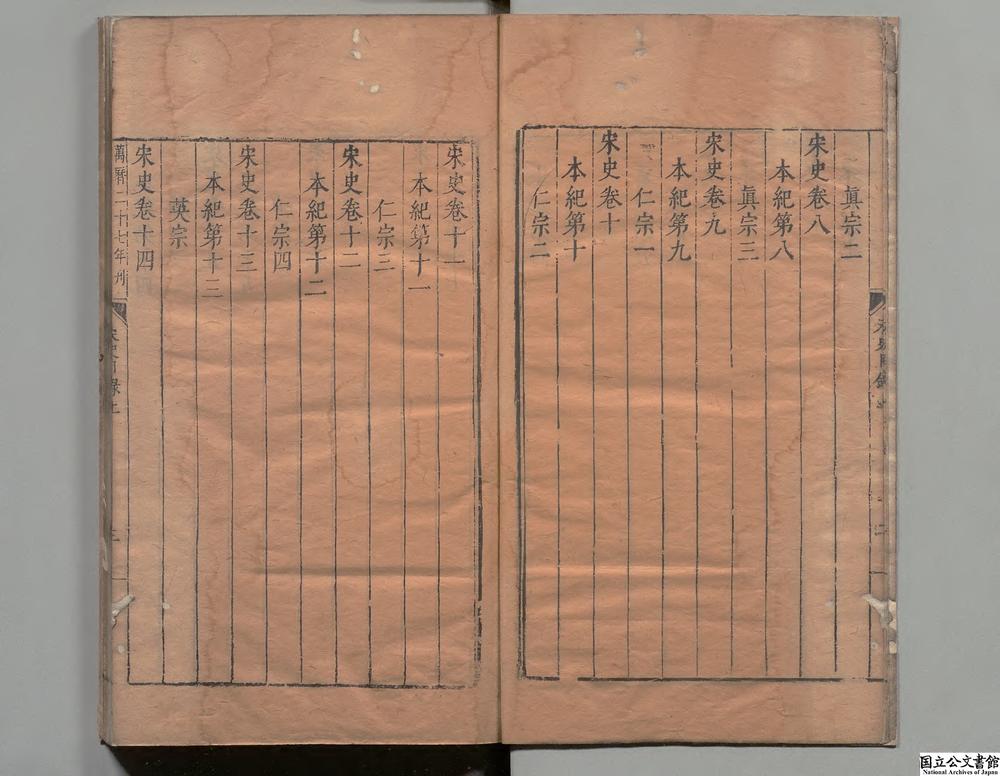 眞宗二
宋史卷八
本紀第八
眞宗三
宋史卷九
本紀第九
仁宗一
宋史卷十
本紀第十
仁宗二
宋史卷十一
本紀第十一
仁宗三
宋史卷十二
本紀第十二
仁宗四
宋史卷十三
本紀第十三
英宗
宋史卷十四
萬曆二十七年刋
宋史目錄上
三
国立公文書館
National Archives of Japan